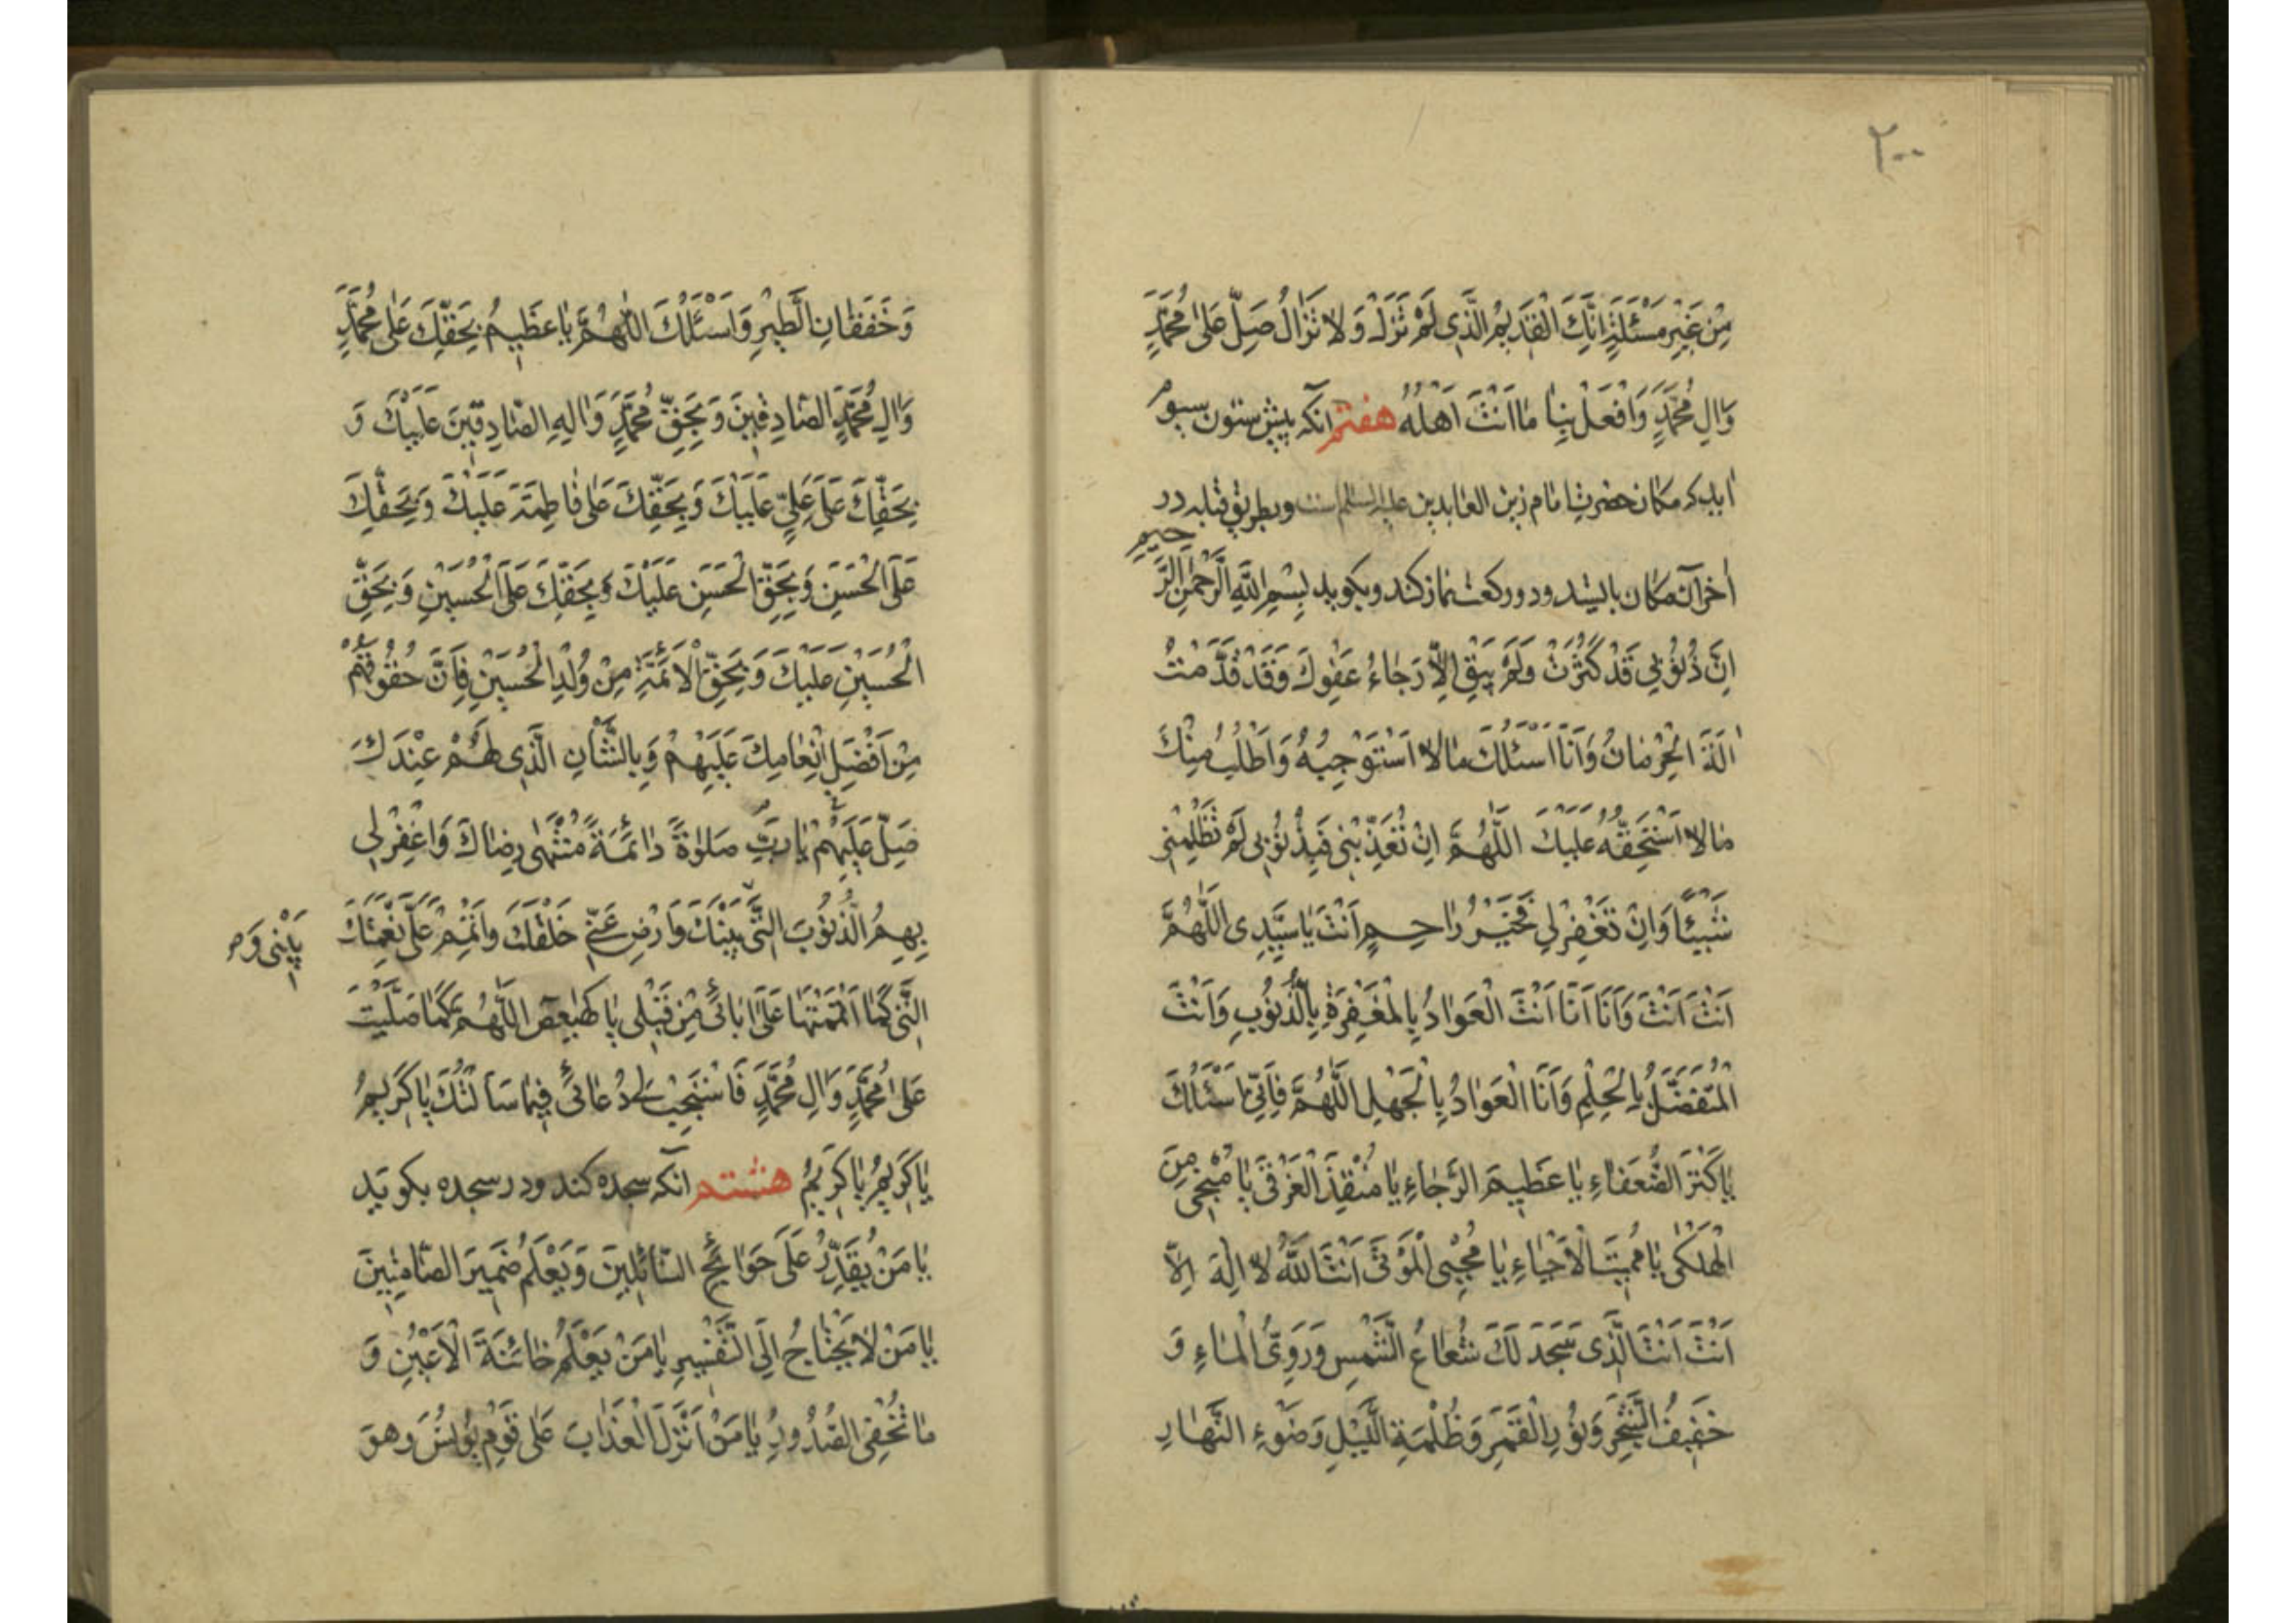 ٢٠٠
مِنْ غَيْرِ مَسْئَلَةٍ اِنَّكَ الْقَدِيمُ الَّذِى لَمْ تَزَلْ وَ لا تَزالُ صَلِّ عَلىٰ مُحَمَّدٍ
وَالِ مُحَمَّدٍ وَافْعَلْ بِنا ما اَنْتَ اَهْلُهُ هفتم انكه پيش ستون سيوم
ايد كه مكان حضرت امام زين العابدين عليه السلام است وبطريق قبله در
اخر آن مكان بايستد ودو ركعت نماز كند وبكويد بِسْمِ اللَّهِ الرَّحْمٰنِ الرَّحيمِ
اِنَّ ذُنُوبِي قَدْ كَثُرَتْ وَلَمْ يَبْقَ اِلاّ رَجاءُ عَفْوِكَ وَقَدْ قَدَّمْتُ
اٰلَةَ الْحِرْمانِ وَاَنَا اَسْئَلُكَ مالا اَسْتَوْجِبُهُ وَاَطْلُبُ مِنْكَ
مالا اَسْتَحِقُّهُ عَلَيْكَ اللّٰهُمَّ اِنْ تُعَذِّبْنِى فَبِذُنُوبِى لَمْ تَظْلِمْنِى
شَيْئًا وَاِنْ تَغْفِرْلِي فَخَيْرُ راحِمٍ اَنْتَ يا سَيِّدِى اللّٰهُمَّ
اَنْتَ اَنْتَ وَاَنَا اَنَا اَنْتَ الْعَوّادُ بِالْمَغْفِرَةِ بِالذُّنُوبِ وَاَنْتَ
الْمُتَفَضِّلُ بِالْحِلْمِ وَاَنَا الْعَوّادُ بِالْجَهْلِ اللّٰهُمَّ فَاِنِّى اَسْئَلُكَ
يا كَنْزَ الضُّعَفاءِ يا عَظِيمَ الرَّجاءِ يا مُنْقِذَ الْغَرْقىٰ يا مُنْجِىَ مِنَ
الْهَلْكىٰ يا مُمِيتَ الْاَحْياءِ يا مُحْيِى الْمَوْتىٰ اَنْتَ اللّٰهُ لا اِلٰهَ اِلاّ
اَنْتَ اَنْتَ الَّذِى سَجَدَ لَكَ شُعاعُ الشَّمْسِ وَدَوِىُّ الْماءِ وَ
حَفِيفُ الشَّجَرِ وَنُورِ الْقَمَرِ وَظُلْمَةِ اللَّيْلِ وَضَوْءِ النَّهارِ
وَخَفَقانِ الطَّيْرِ وَاَسْئَلُكَ اللّٰهُمَّ يا عَظِيمُ بِحَقِّكَ عَلىٰ مُحَمَّدٍ
وَالِ مُحَمَّدٍ الصّادِقِينَ وَ بِحَقِّ مُحَمَّدٍ وَالِهِ الصّادِقِينَ عَلَيْكَ وَ
بِحَقِّكَ عَلىٰ عَلِيٍّ عَلَيْكَ وَبِحَقِّكَ عَلىٰ فاطِمَةَ عَلَيْكَ وَبِحَقِّكَ
عَلَى الْحَسَنِ وَبِحَقِّ الْحَسَنِ عَلَيْكَ وَبِحَقِّكَ عَلَى الْحُسَيْنِ وَبِحَقِّ
الْحُسَيْنِ عَلَيْكَ وَبِحَقِّ الْاَئِمَّةِ مِنْ وُلْدِ الْحُسَيْنِ فَاِنَّ حُقُوقَهُمْ
مِنْ اَفْضَلِ اِنْعامِكَ عَلَيْهِمْ وَبِالشَّأْنِ الَّذِى لَهُمْ عِنْدَكَ
صَلِّ عَلَيْهِمْ يا رَبِّ صَلوٰةً دائِمَةً مُنْتَهىٰ رِضاكَ وَاغْفِرْلِى
بِهِمُ الذُّنُوبَ الَّتِى بَيْنَكَ وَارْضِ عَنِّى خَلْقَكَ وَاَتْمِمْ عَلَىَّ نِعْمَتَكَ
بَيْنِى وَم
الَّتِى كَما اَتْمَمْتَها عَلىٰ اٰبائى مِنْ قَبْلِى يا كهيعص اللّٰهُمَّ كَما صَلَّيْتَ
عَلىٰ مُحَمَّدٍ وَالِ مُحَمَّدٍ فَاسْتَجِبْ لِى دُعائى فِيما سَاَلْتُكَ يا كَرِيمُ
يا كَرِيمُ يا كَرِيمُ هشتم انكه سجده كند ودر سجده بكويد
يا مَنْ يُقَدِّرُ عَلىٰ حَوائِجِ السّائِلِينَ وَيَعْلَمُ ضَمِيرَ الصّامِتِينَ
يا مَنْ لا يَحْتاجُ اِلَى التَّفْسِيرِ يا مَنْ يَعْلَمُ خائِنَةَ الْاَعْيُنِ وَ
ما تُخْفِى الصُّدُورُ يا مَنْ اَنْزَلَ الْعَذابَ عَلىٰ قَوْمِ يُونُسَ وَهوَ